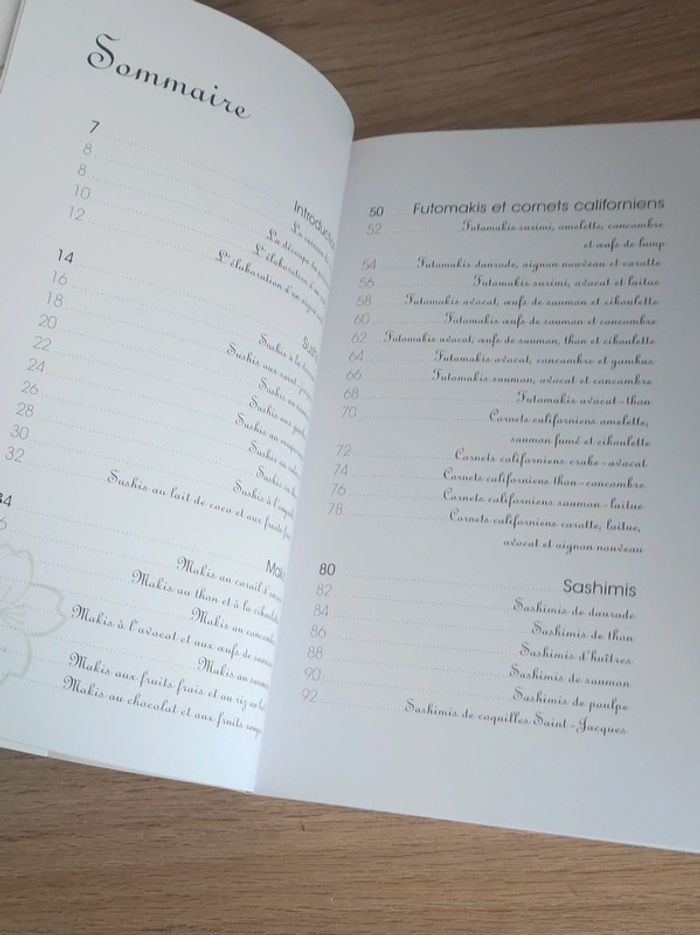 Sommaire
7 Introduction
8 La cuisine
8 La découpe du
10 L'élaboration d'un
12 L'élaboration d'un nigiri
14
16 Sushis à la
18 Sushis aux saint-
20 Sushis au
22 Sushis aux
24 Sushis au
26 Sushis au
28 Sushis au
30 Sushis à l'
32 Sushis au lait de coco et aux fruits
34
Makis au corail d'
Makis au thon et à la ciboulette
Makis au concombre
Makis à l'avocat et aux œufs de saumon
Makis au saumon
Makis aux fruits frais et au riz au lait
Makis au chocolat et aux fruits rouges
50 Futomakis et cornets californiens
52 Futomakis surimi, omelette, concombre
et œufs de lump
54 Futomakis daurade, oignon nouveau et carotte
56 Futomakis surimi, avocat et laitue
58 Futomakis avocat, œufs de saumon et ciboulette
60 Futomakis œufs de saumon et concombre
62 Futomakis avocat, œufs de saumon, thon et ciboulette
64 Futomakis avocat, concombre et gambas
66 Futomakis saumon, avocat et concombre
68 Futomakis avocat-thon
70 Cornets californiens omelette,
saumon fumé et ciboulette
72 Cornets californiens crabe-avocat
74 Cornets californiens thon-concombre
76 Cornets californiens saumon-laitue
78 Cornets californiens carotte, laitue,
avocat et oignon nouveau
80 Sashimis
82 Sashimis de daurade
84 Sashimis de thon
86 Sashimis d'huîtres
88 Sashimis de saumon
90 Sashimis de poulpe
92 Sashimis de coquilles Saint-Jacques